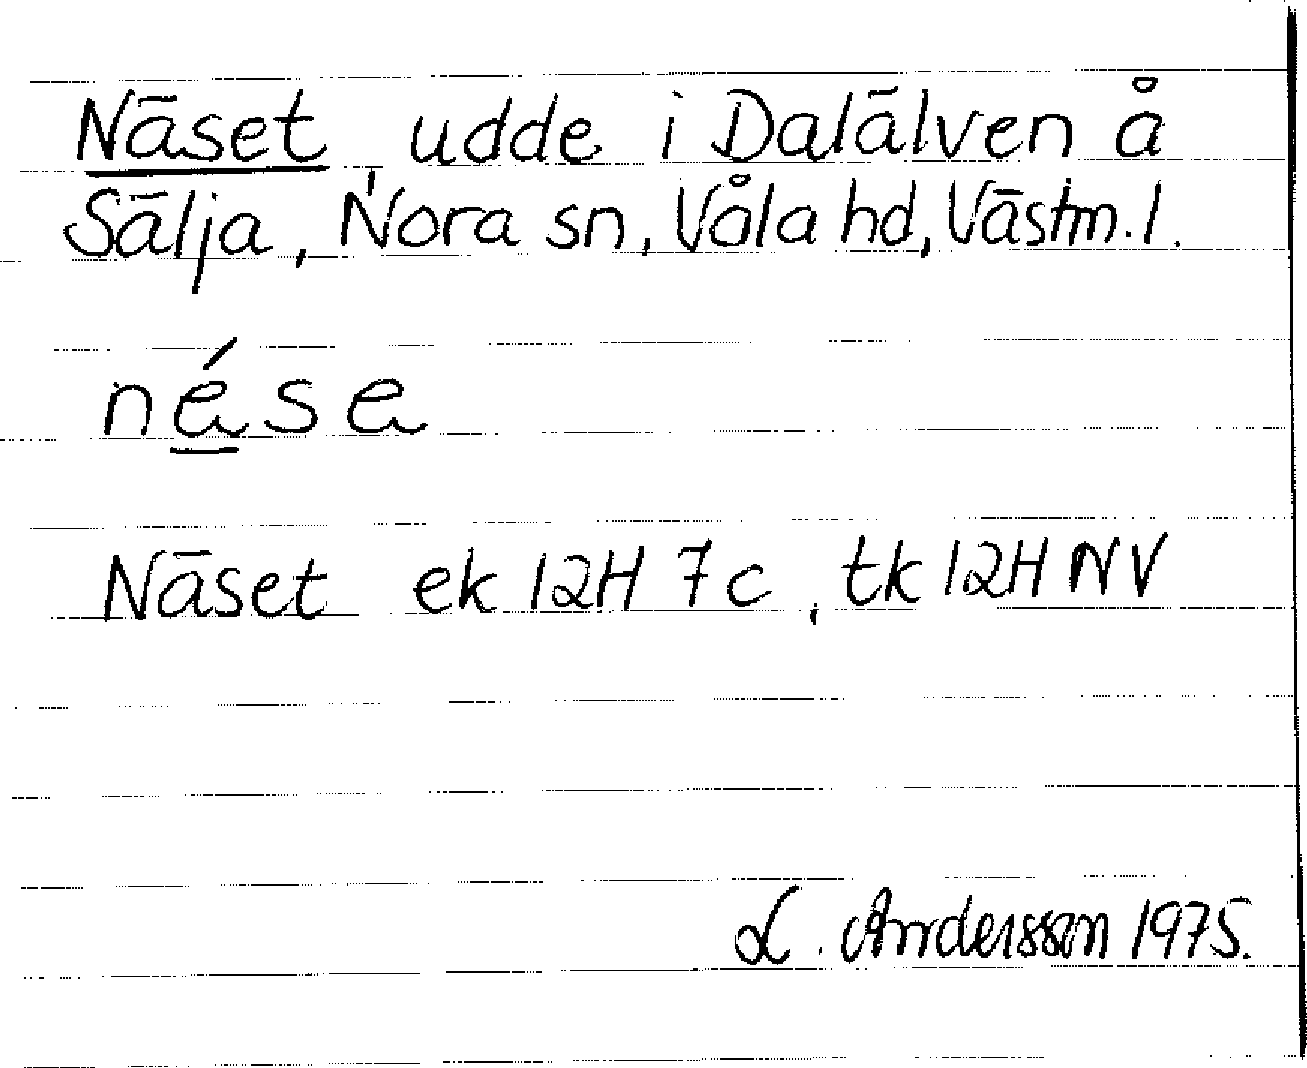 Näset, udde i Dalälven å
Sälja, Nora sn, Våla hd, Västm.l.
nése
Näset ek 12H 7c, tk 12H NV
L. Andersson 1975.